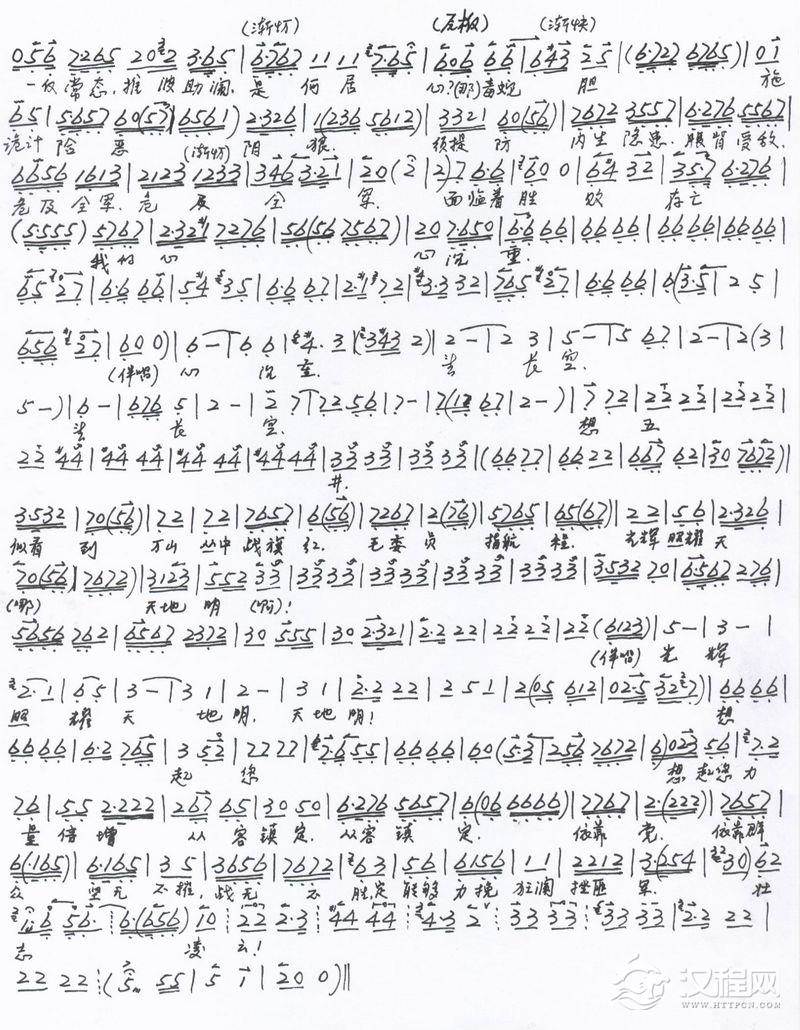 (渐切) (尾板) (渐快)
056 7265 2022 3·65 | 6·767 11 11 27·65 | 606 66 | 643 25 | (6·722 6765) | 01
一反常态,推波助澜,是何居心?(那)毒蛇胆 施
65 | 5657 60(57) | 6561) 2·326 | 1(236 5612) | 3321 60(56) | 7672 3557 | 6·276 5567 |
诡计险恶 (渐切) 阴狠. 须提防 内生隐患.腹背受敌.
6656 1613 | 2123 1233 | 346 3·21 | 20(2 | 2)7 6·6 | 60 0 | 64 32 | 35·7 6·276 |
危及全军.危及全军. 面临着胜败存亡
(5555) 5767 | 2·321 7276 | 56(56 7567) | 20 7·650 | 6·6 66 | 66 66 | 66 66 | 66 66 |
我的心 心沉重.
65 27 | 6·6 66 | 54 35 | 6·6 67 | 2·1 72 | 3·3 32 | 765 27 | 6·6 66 | 6(3·5 | 2 5 |
656 27 | 60 0) | 6 - | 6 6 | 4· 3 | (343 2) | 2 - | 2 3 | 5 - | 5 67 | 2 - | 2 (3 |
(伴唱) 心沉重. 长空.
5 -) | 6 - | 676 5 | 2 - | 2 7 | 72 56 | 7 - | 7(12 67 | 2 -) | 7 72 | 22 22 | 22 22 |
长空. 想五
22 44 | 44 44 | 44 44 | 44 44 | 33 33 | 33 33 | (66 77 | 66 22 | 667 62 | 30 7672) |
井.
3532 | 70(56) | 72 | 72 | 7657 | 6(56) | 7267 | 2(76) | 5765 | 65(67) | 22 | 56 | 2·326 |
似看到 万山丛中战旗红. 毛委员指航程. 光辉照耀天
70(56) | 7672) | 3123 | 552 33 | 33 33 | 33 33 | 33 33 | 33 33 | 3532 70 | 6567 276 |
(哪) 天地明(啊)!
5656 762 | 6567 2372 | 30 555 | 30 2·321 | 2·2 22 | 22 22 | 22 (6123) | 5 - | 3 - |
(伴唱)光辉
2· 1 | 6 5 | 3 - | 3 1 | 2 - | 3 1 | 2·2 22 | 2 5 1 | 2(05 612 | 02·5 327) | 66 66 |
照耀天地明,天地明! 想
66 66 | 6·2 765 | 3 52 | 77 77 | 7·6 55 | 66 66 | 60 (53 | 256 7672 | 6)023 56 | 7·2
起您 想起您力
76 | 55 2·222 | 267 65 | 30 50 | 6·276 5657 | 6(06 6666) | 7767 | 2·(222) | 7657 |
量倍增 从容镇定.从容镇定. 依靠党.依靠群
6(·165) | 6·165 | 3 5 | 3656 | 7672 | 63 | 56 | 6156 | 11 | 2212 | 3·(254 | 30) 62
众 坚无不摧,战无不胜,定能够力挽狂澜挫匪军. 壮
16 56· | 6·(656) 10 22 2·3 44 44 4·3 2 33 33 33 33 | 2·2 22 |
志凌云!
22 22 (5 55 | 5 1 | 20 0) ‖
汉程网
WWW.HTTPCN.COM